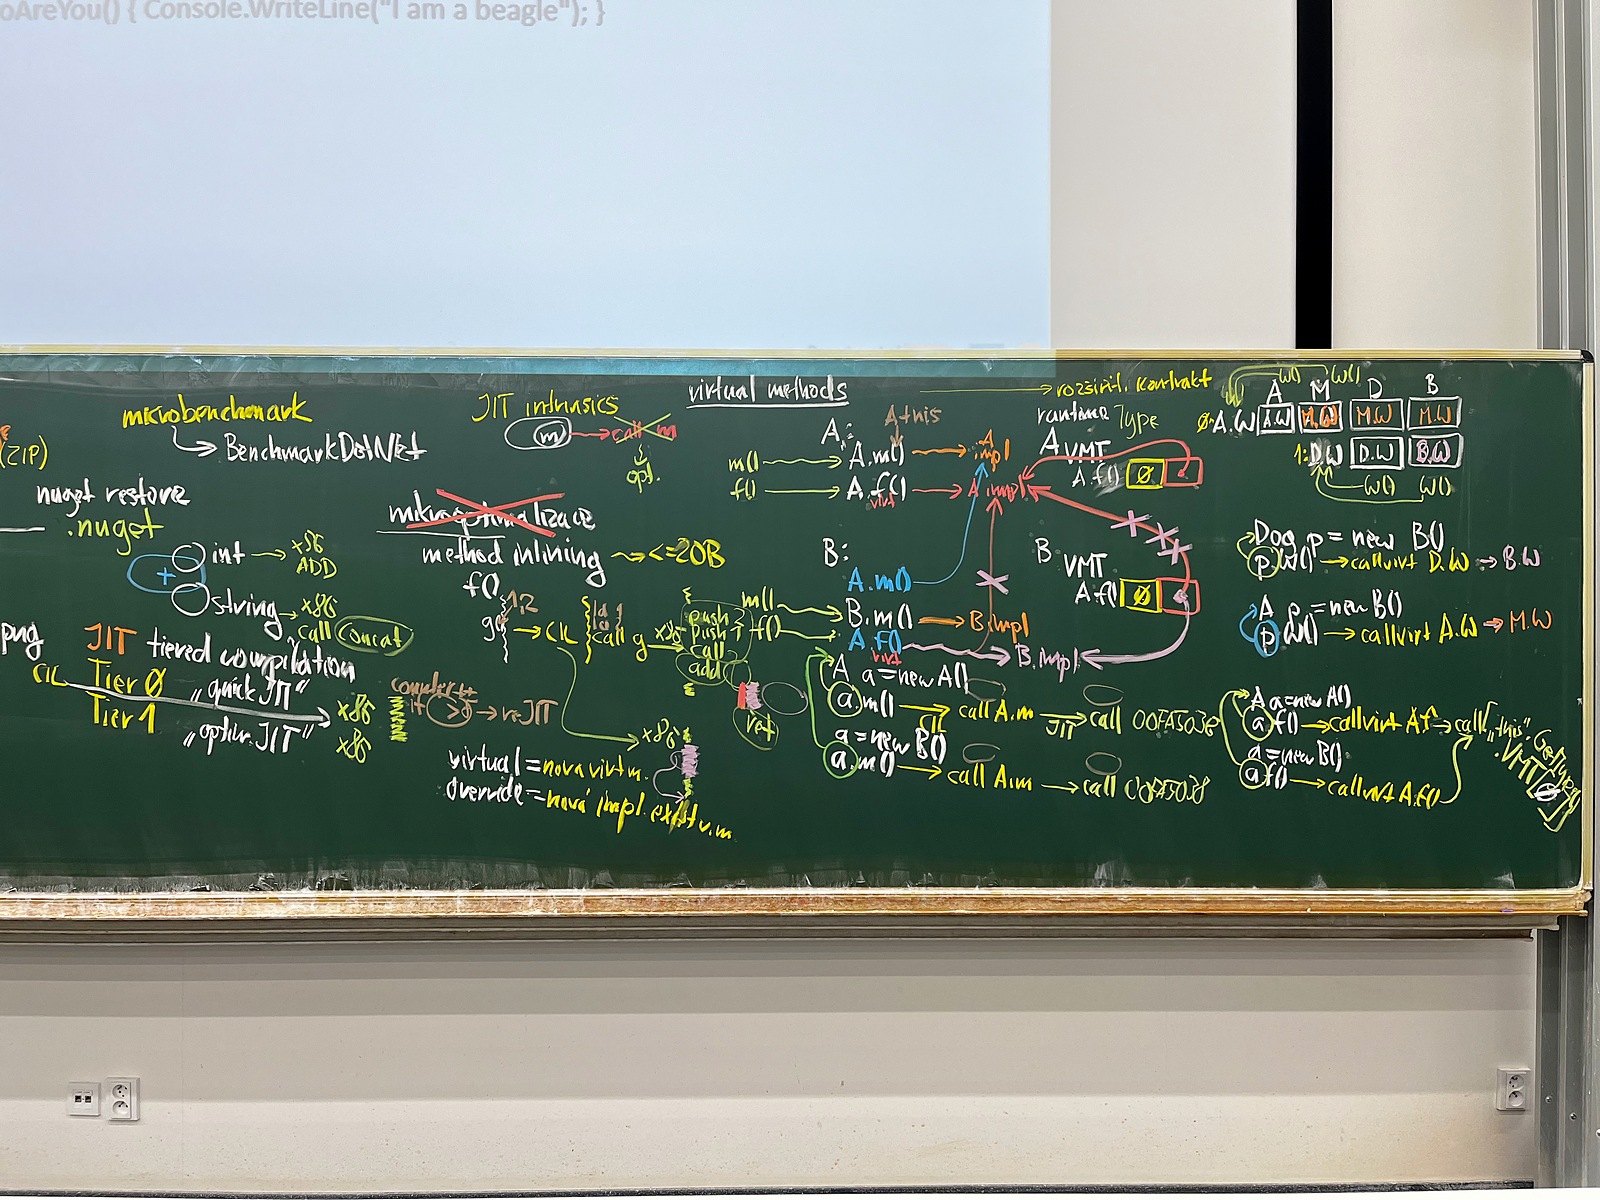 oAreYou() { Console.WriteLine("I am a beagle"); }
(ZIP)
nuget restore
.nuget
png
microbenchmark
BenchmarkDotNet
+
int → x86
ADD
string → x86
call Concat
JIT tiered compilation
CIL Tier 0 „quick JIT"
Tier 1 „optim. JIT"
x86
x86
counter++
→ reJIT
JIT intrinsics
m → call m
opt.
mikrooptimalizace
method inlining → <=20B
f()
g
1,2
→ CIL
call g
x86
push 2
push 1
call
add
ret
x86
virtual = nová virt m.
override = nová impl. exist v.m
virtual methods
→ rozšiř. kontrakt
A: A this
m() → A.m() → A.impl
f() → A.f() → A.impl
virt
B:
A.m()
m() → B.m() → B.impl
f() → A.f() → B.impl
virt
A a = new A()
a.m() → call A.m → call 00FA5038
CIL JIT
a = new B()
a.m() → call A.m → call 00FA5038
runtime Type
A VMT
A.f() 0
B VMT
A.f() 0
W() W()
A M D B
0: A.W A.W M.W M.W M.W
1: D.W D.W B.W
W() W()
Dog p = new B()
p.W() → callvirt D.W → B.W
A p = new B()
p.W() → callvirt A.W → M.W
A a = new A()
a.f() → callvirt A.f → call „this".GetType()
.VMT[0]
a = new B()
a.f() → callvirt A.f()